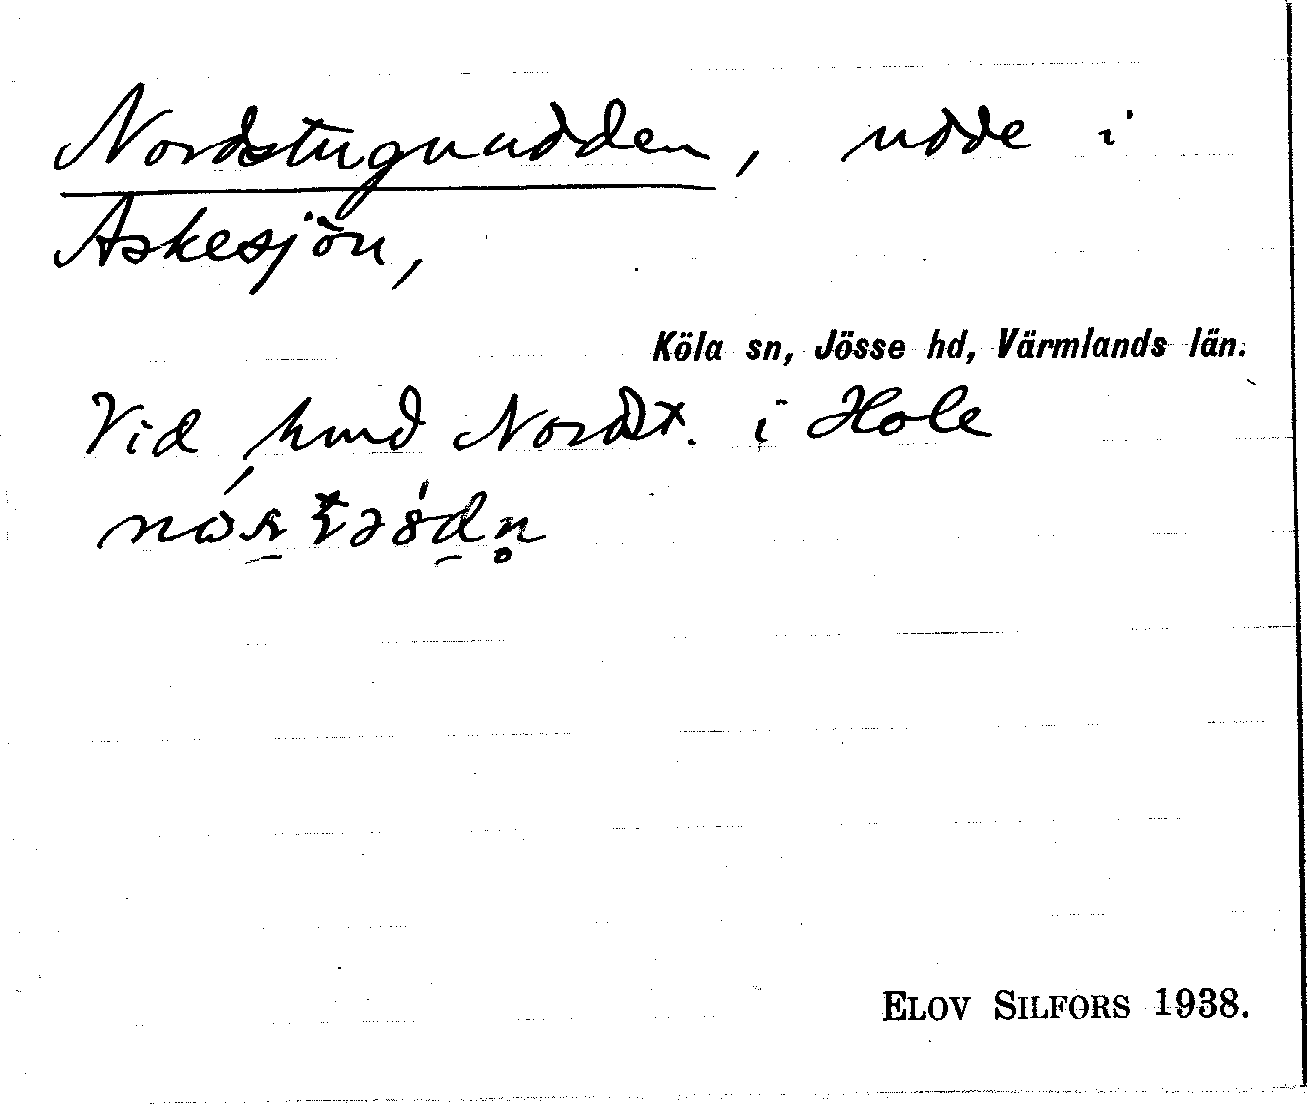 Nordstuguudden, udde i
Askesjön,
Köla sn, Jösse hd, Värmlands län.
Vid hmd Nordst. i Hole
ELOV SILFORS 1938.